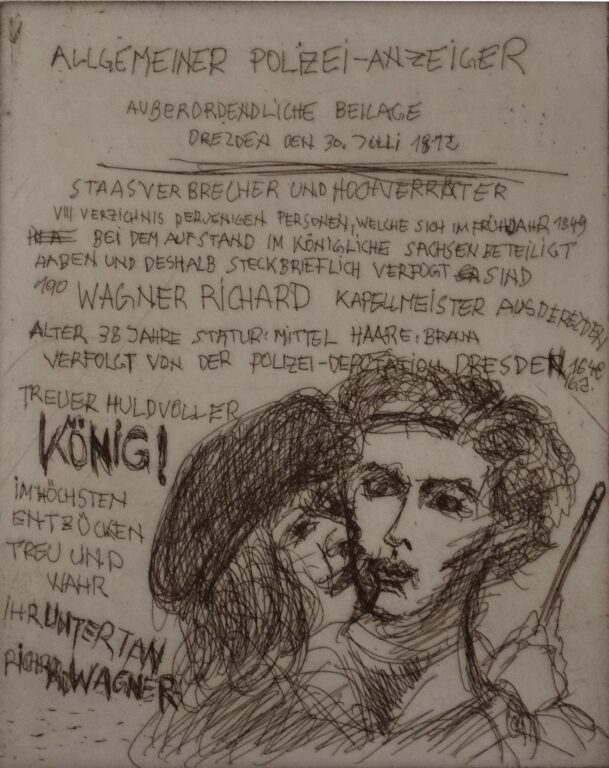 ALLGEMEINER POLIZEI-ANZEIGER
AUßERORDENDLICHE BEILAGE
DREZDEN DEN 30. JULLI
STAASVERBRECHER UND HOCHVERRÄTER
VIII VERZICHNIS DERJENIGEN PERSONEN, WELCHE SICH IM FRÜHJAHR 1849
BEI DEM AUFSTAND IM KÖNIGLICHE SACHSEN BETEILIGT
HABEN UND DESHALB STECKBRIEFLICH VERFOGT SIND
190 WAGNER RICHARD KAPELLMEISTER AUS DEREZDEN
ALTER 38 JAHRE STATUR: MITTEL HAARE: BRAUN
VERFOLGT VON DER POLIZEI-DEPUTATION DRESDEN
TREUER HULDVOLLER
KÖNIG!
IM HÖCHSTEN
ENTZÜCKEN
TREU UND
WAHR
IHR UNTERTAN
RICHARD WAGNER